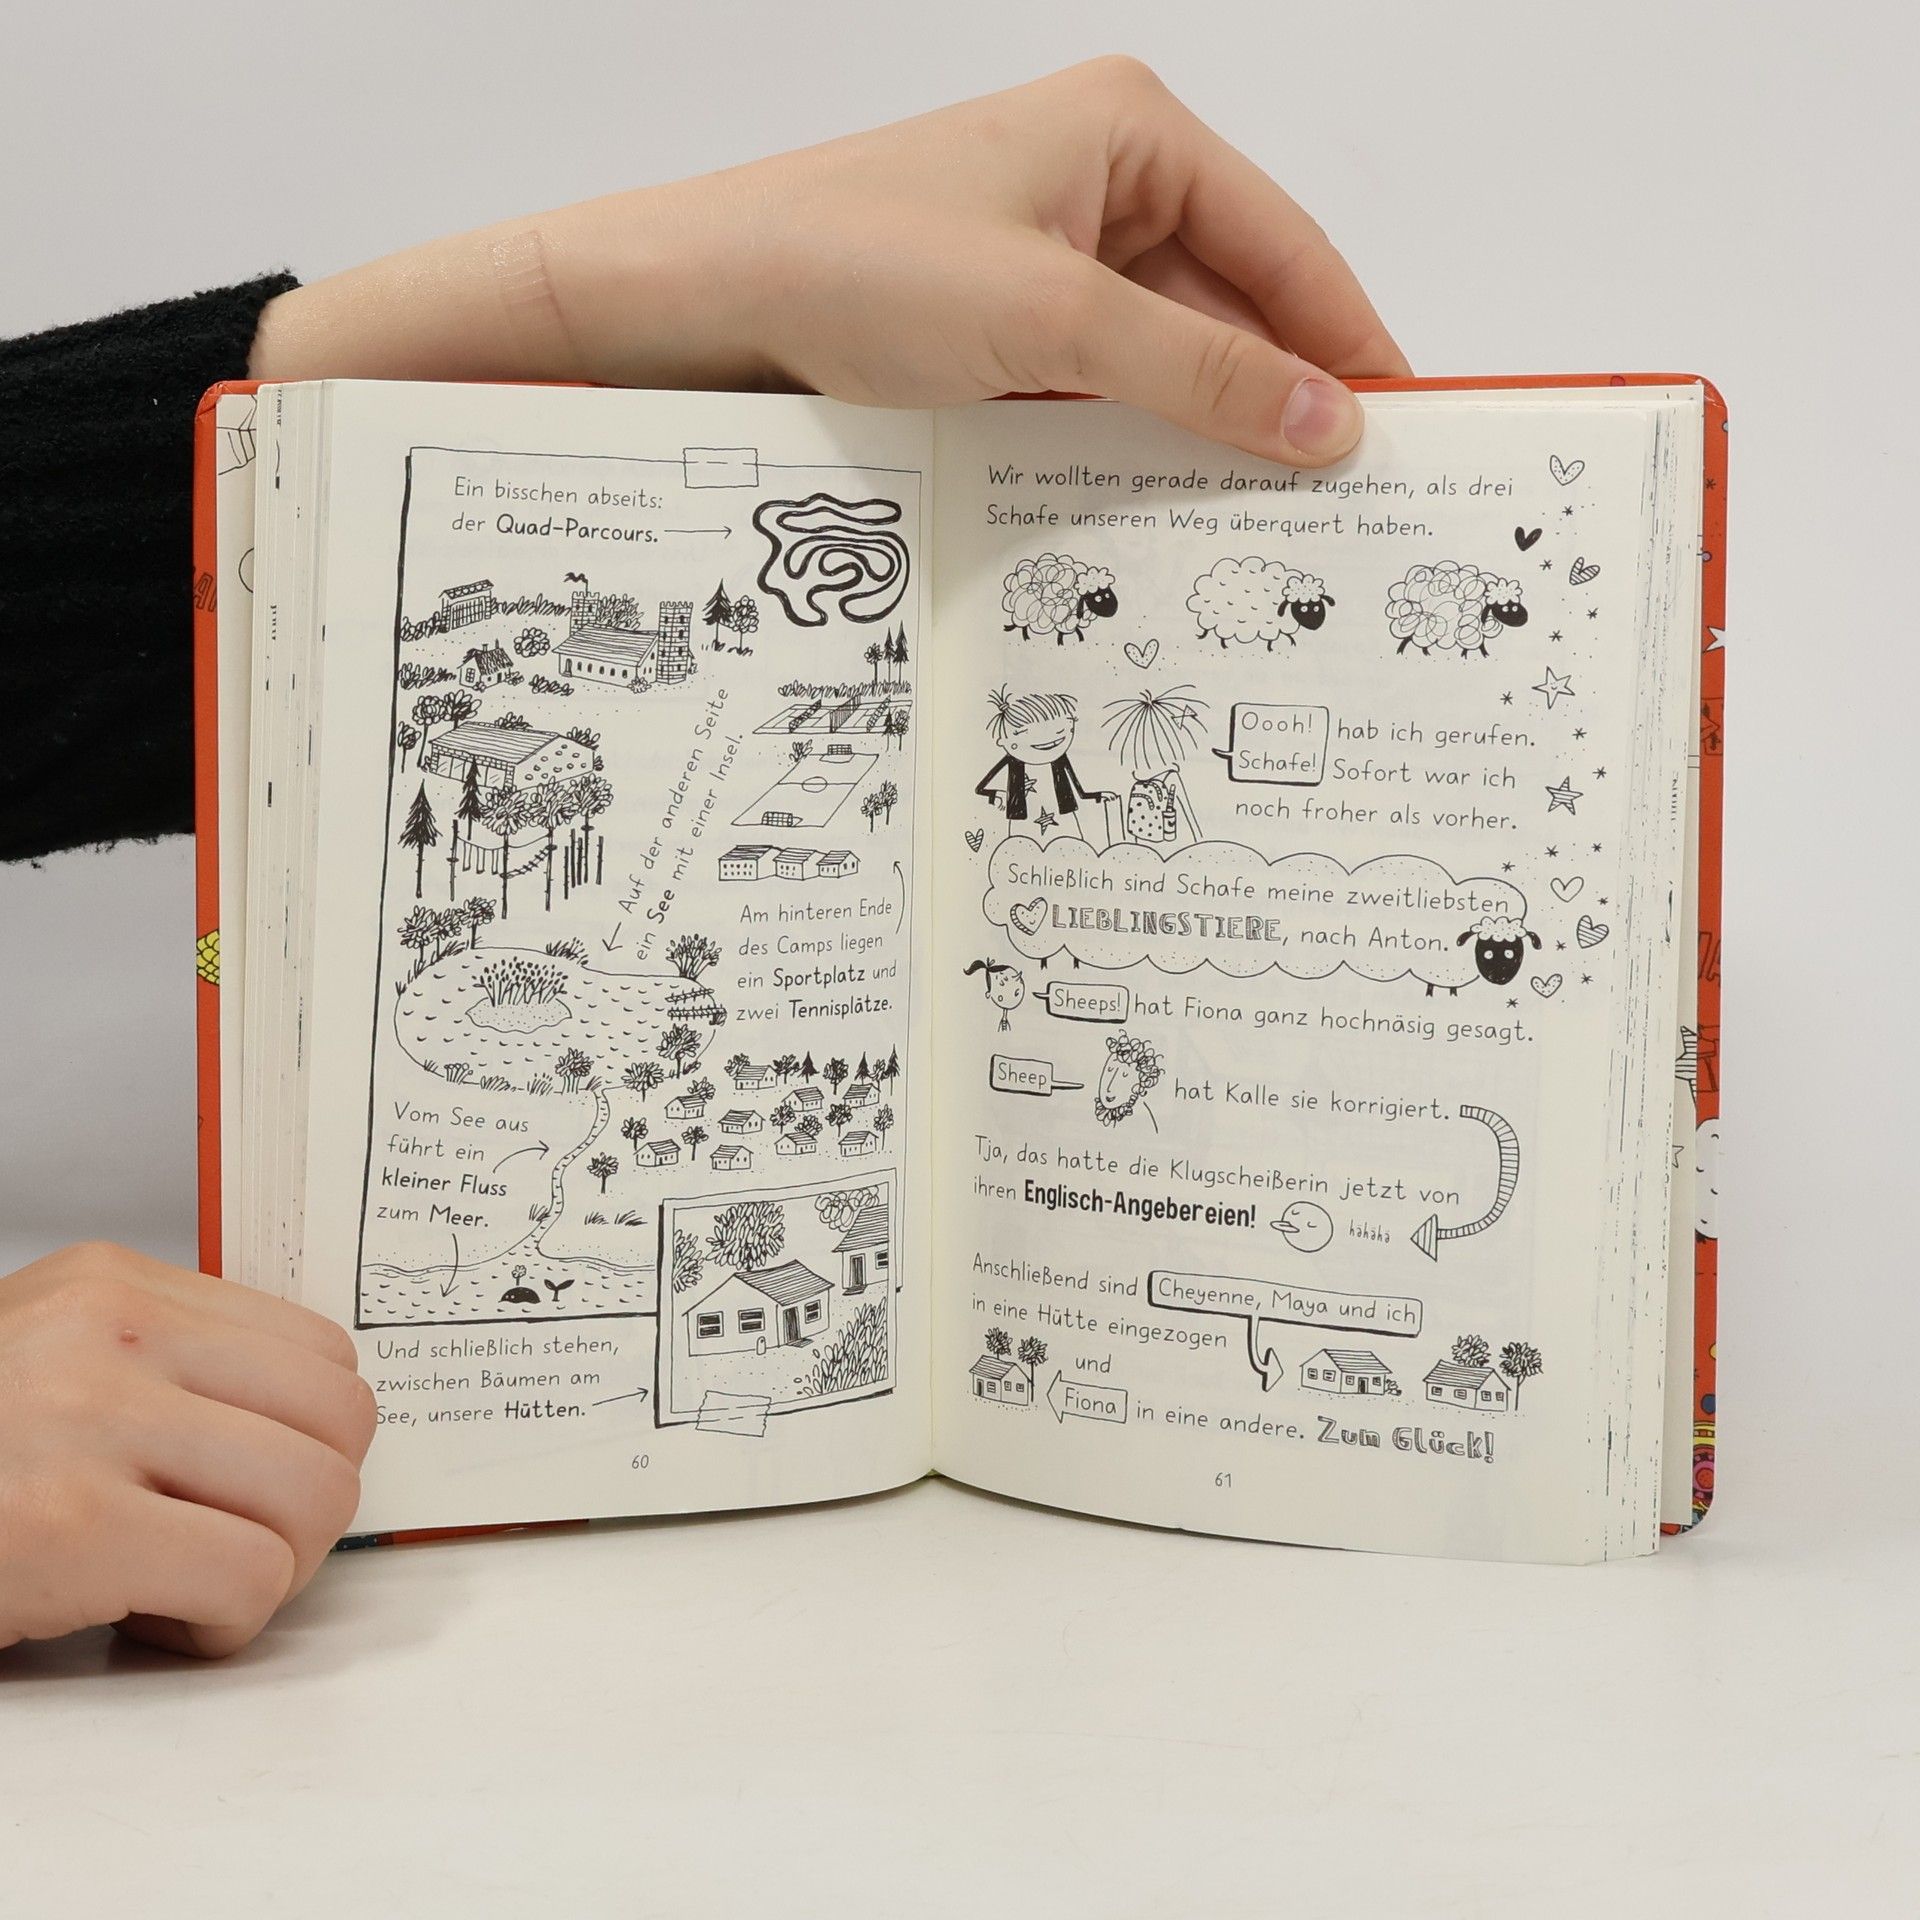 Ein bisschen abseits:
der Quad-Parcours.
Auf der anderen Seite
ein See mit einer Insel.
Am hinteren Ende
des Camps liegen
ein Sportplatz und
zwei Tennisplätze.
Vom See aus
führt ein
kleiner Fluss
zum Meer.
Und schließlich stehen,
zwischen Bäumen am
See, unsere Hütten.
60
Wir wollten gerade darauf zugehen, als drei
Schafe unseren Weg überquert haben.
Oooh! hab ich gerufen.
Schafe! Sofort war ich
noch froher als vorher.
Schließlich sind Schafe meine zweitliebsten
LIEBLINGSTIERE, nach Anton.
Sheeps! hat Fiona ganz hochnäsig gesagt.
Sheep hat Kalle sie korrigiert.
Tja, das hatte die Klugscheißerin jetzt von
ihren Englisch-Angebereien! hähähä
Anschließend sind Cheyenne, Maya und ich
in eine Hütte eingezogen
und
Fiona in eine andere. Zum Glück!
61